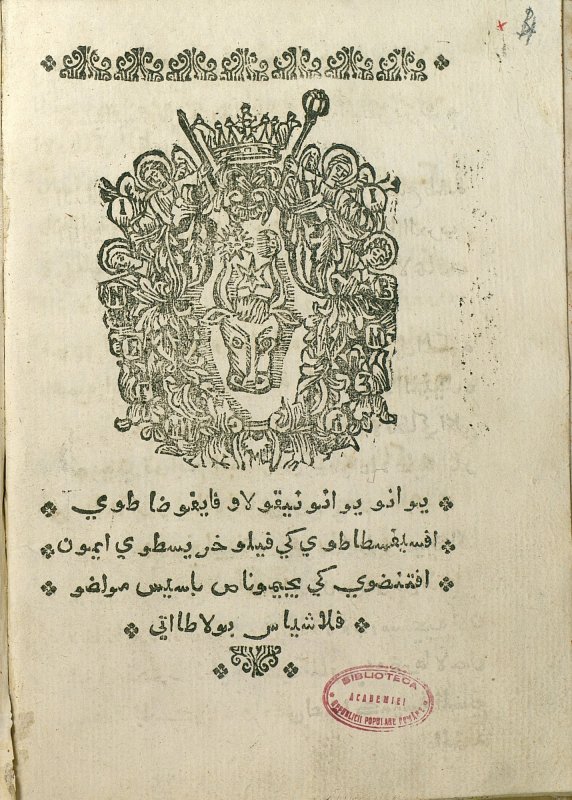 يوانو يوانو نيقولاو فايفوضا طوي
افسيفسطاطوي كي فيلو خريسطوي ايمون
افثنضوي كي يجيموناص باسيس مولضو
فلاشياس بولاطااتي
BIBLIOTECA
ACADEMIEI
REPUBLICII POPULARE ROMÂNE